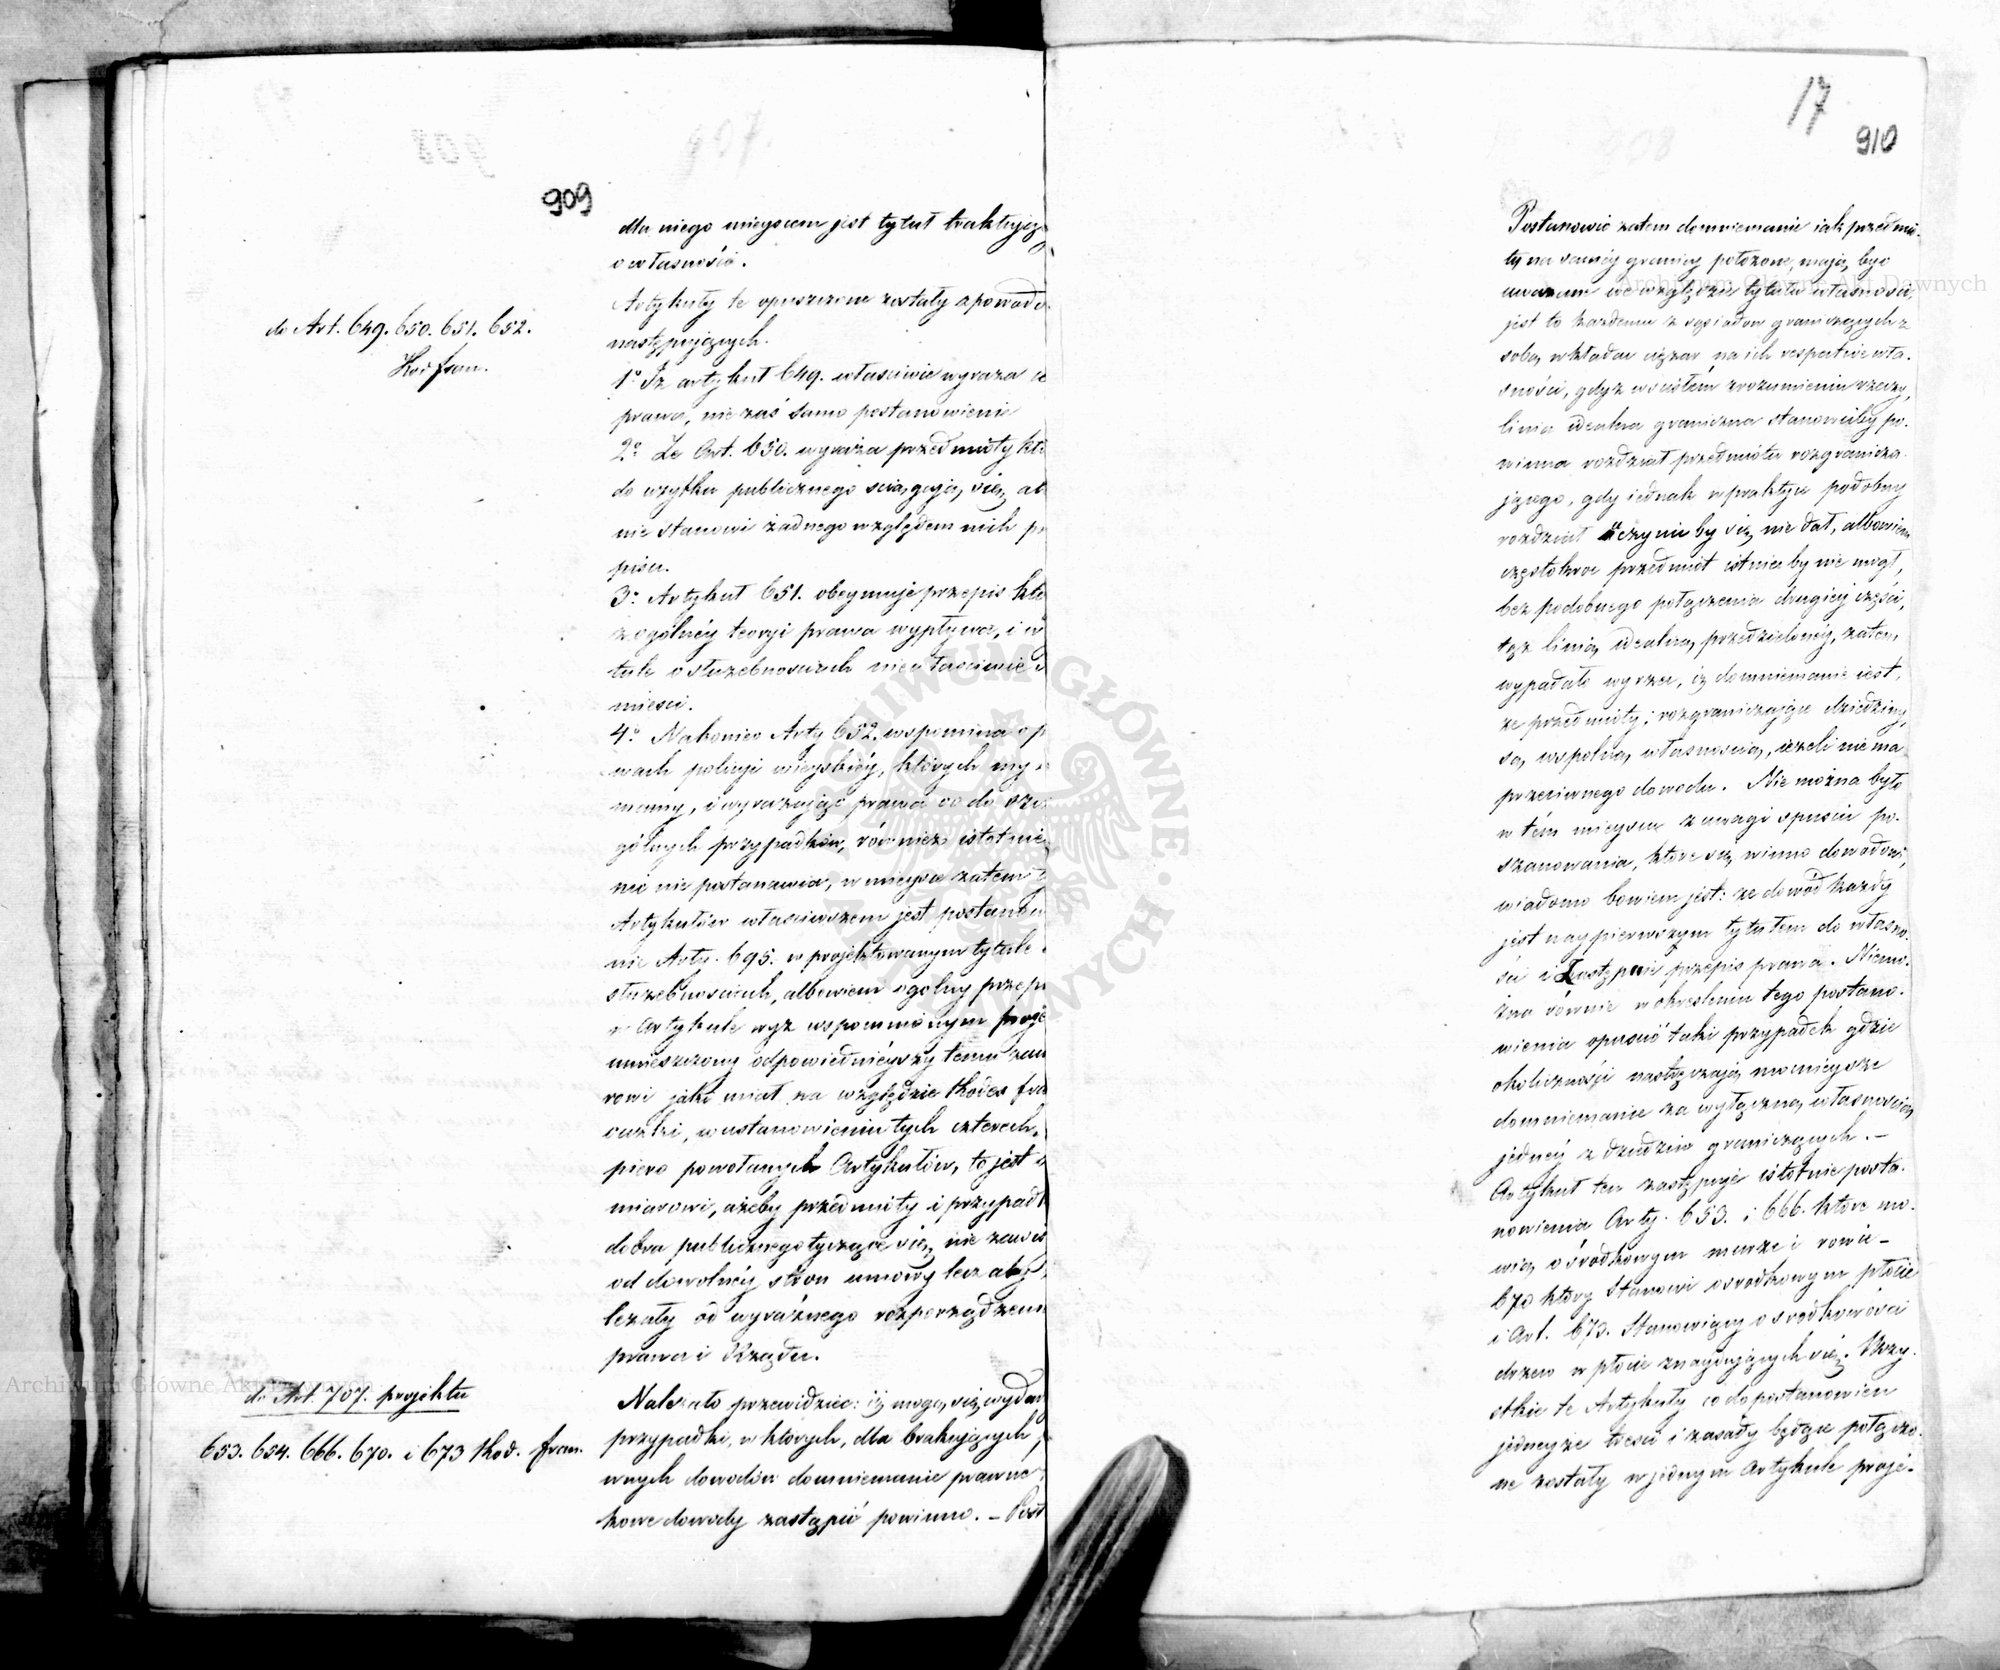 909
dla niego mieyscem jest tytuł traktujący
o własności.
do Art. 649. 650. 651. 652.
Kod. fran.
Artykuły te opuszczone zostały z powodó
następujących.
1° Iż artykuł 649. właściwie wyraża
prawa, nie zaś samo postanowienie
2° Ze Art. 650. wyraża przedmioty któ
do użytku publicznego ściągają się, al
nie stanowi żadnego względem nich p
pisu.
3° Artykuł 651. obeymuje przepis któ
z ogólnéy teoryi prawa wypływa, i w
tule o służebnościach niewłaściwie
mieści.
4° Nakoniec Arty 652. wspomina o p
wach policyi wieyskiéy, których my
mamy, i wyrażając prawa co do szcz
gólnych przypadków, również istotnie
nic nie postanawia, w mieysce zatem
Artykułów właściwszem jest postanow
nie Artu. 695. w projektowanym tytule
służebnościach, albowiem ogólny przep
w Artykule wyż wspomnionym proje
umieszczony odpowiednieyszy temu zam
rowi jaki miał na względzie Kodex fra
cuzki, w ustanowieniu tych czterech
piero powołanych Artykułów, to jest
miarowi, ażeby przedmioty i przypadk
dobra publicznego tyczące się, nie zawis
od dowolnéy stron umowy lecz aby
leżały od wyraźnego rozporządzeni
prawa i Rządu.
do Art. 707. projektu
653. 654. 666. 670. i 673 Kod. fran.
Należało przewidzieć: iż mogą się wydar
przypadki, w których, dla brakujących
wnych dowodów domniemanie prawne
kowe dowody zastąpić powinno. – Post
17
910
Postanowić zatem domniemanie jak przedmio-
ty na saméy granicy położone, mają być
uważane we względzie tytułu własności,
jest to każdemu z sąsiadów graniczących z
sobą wkładać ciężar na ich respective wła-
sności, gdyż w ścisłém zrozumieniu rzeczy,
linia idealna graniczna stanowićby po-
winna rozdział przedmiotu rozgranicza-
jącego, gdy jednak w praktyce podobny
rozdział uczynić by się nie dał, albowiem
częstokroć przedmiot istnieć by nie mógł,
bez podobnego połączenia drugiéy części,
tąż linią idealną przedzielonéy, zatem
wypadało wyrzec, iż domniemanie jest,
że przedmioty rozgraniczające dziedziny,
są wspólną własnością, jeżeli nie ma
przeciwnego dowodu. Nie można było
w tém mieyscu z uwagi spuścić po-
szanowania, które się winno dowodowi,
wiadomo bowiem jest: że dowód każdy
jest naypierwszym tytułem do własno-
ści i zastępuie przepis prawa. Niemo-
żna równie w określeniu tego postano-
wienia opuścić taki przypadek gdzie
okoliczności nastręczają mocnieysze
domniemanie za wyłączną własnością
jednéy z dziedzin graniczących. –
Artykuł ten zastępuje istotnie posta-
nowienia Arty. 653. i 666. które mó-
wią o środkowym murze i rowie –
670 który Stanowi o środkowym płocie
i Art. 673. Stanowiący o środkowości
drzew w płocie znaydujących się. Wszy-
stkie te Artykuły co do postanowień
jedneyże treści i zasady będące połączo-
ne zostały w jednym Artykule proje-